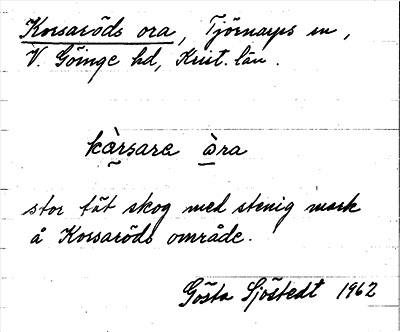 Korsaröds ora, Tjörnarps sn,
V. Göinge hd, Krist. län.
kàrsara àra
stor tät skog med stenig mark
å Korsaröds område.
Gösta Sjöstedt 1962